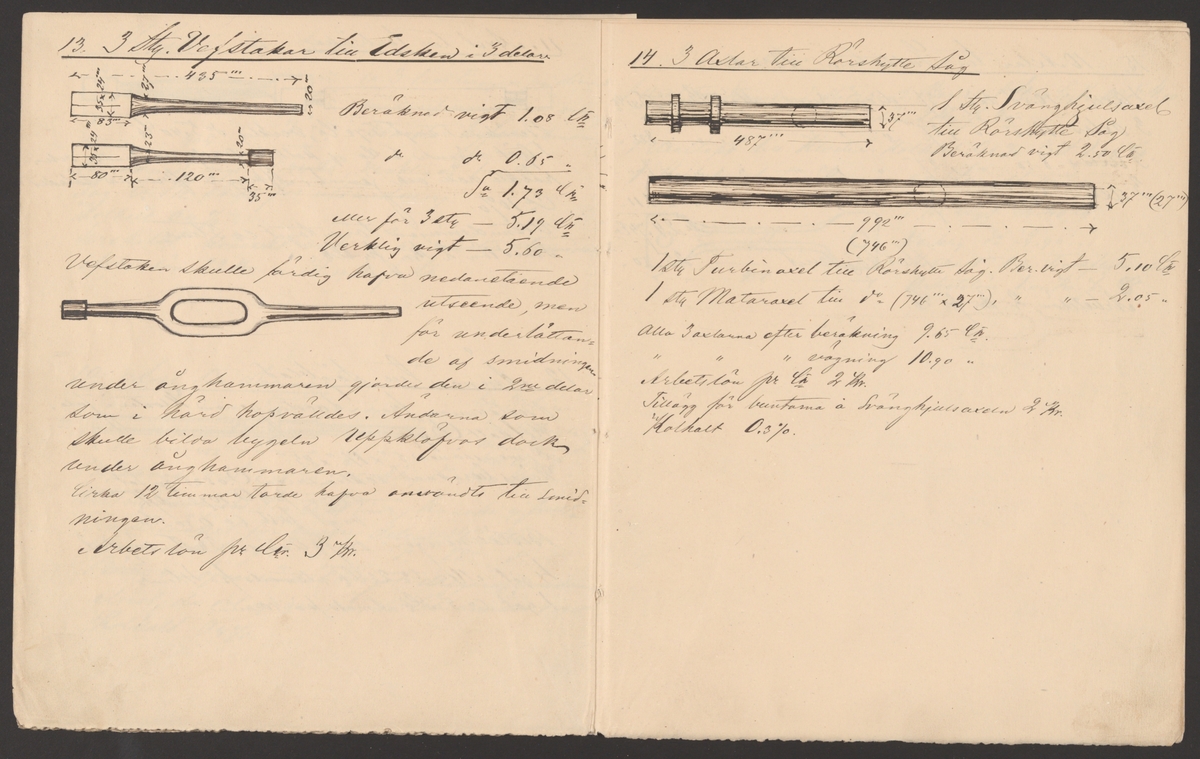 13. 3 Stÿ. Vefstakar till Edsken i 3 delar.
435'''
20'''
Beräknad vigt 1.08 Ctr
do do 0.65 "
80''' 120''' 35'''
Sa 1.73 Ctr
eller för 3 sty — 5.19 Ctr
Verklig vigt — 5.60 "
Vefstaken skulle färdig hafva nedanstående
utseende, men
för underlättan-
de af smidningen
under ånghammaren gjordes den i 2ne delar
som i härd hopvälldes. Ändarna som
skulle bilda bygeln uppklöfvos dock
under ånghammaren.
Cirka 12 timmar torde hafva användts till smid-
ningen.
Arbetslön pr Ctr. 3 Kr.
14. 3 Axlar till Rörshytte Såg
37'''
487'''
1 Sty. Svänghjulsaxel
till Rörshytte Såg
Beräknad vigt 2.50 Ctr
37''' (27''')
992'''
(746''')
1 sty Turbinaxel till Rörshytte Såg. Ber. vigt — 5.10 Ctr
1 sty Mataraxel till do (746''' x 27'''), " " — 2.05 "
Alla 3 axlarna efter beräkning 9.65 Ctr.
" " " vägning 10.90 "
Arbetslön pr Ctr 2 Kr.
Tillägg för buntarna å Svänghjulsaxeln 2 Kr.
Kolhalt 0.3 %.